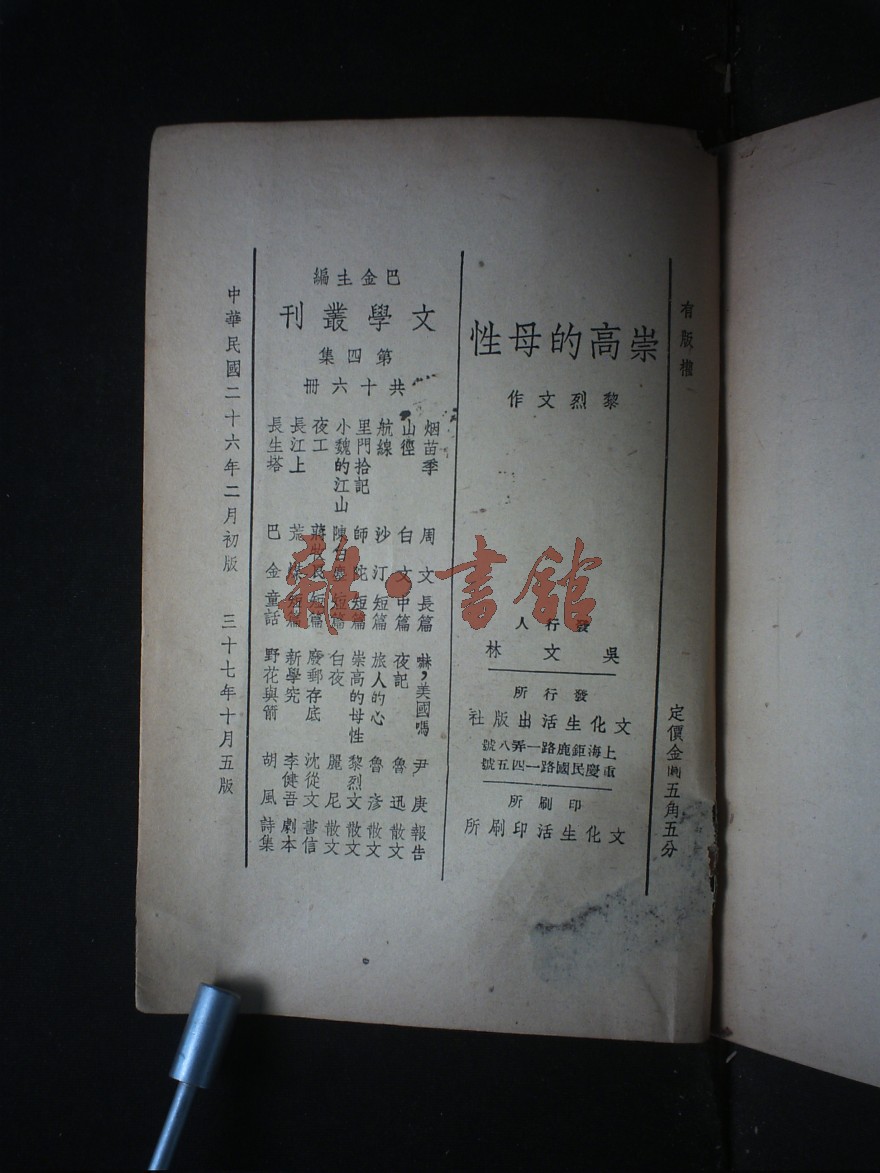 有版權
定價金圓五角五分
崇高的母性
黎烈文作
發行人
吳文林
發行所
文化生活出版社
上海鉅鹿路一弄八號
重慶民國路一四五號
印刷所
文化生活印刷所
巴金主編
文學叢刊
第四集
共十六冊
烟苗季 周文 長篇
山徑 白文 中篇
航線 沙汀 短篇
里門拾記 師陀 短篇
小魏的江山 陳白塵 短篇
夜工 蔣牧良 短篇
長江上 荒煤 短篇
長生塔 巴金 童話
嘛，美國嗎 尹庚 報告
夜記 魯迅 散文
旅人的心 魯彥 散文
崇高的母性 黎烈文 散文
白夜 麗尼 散文
廢郵存底 沈從文 書信
新學究 李健吾 劇本
野花與箭 胡風 詩集
中華民國二十六年二月初版 三十七年十月五版
雜·書館